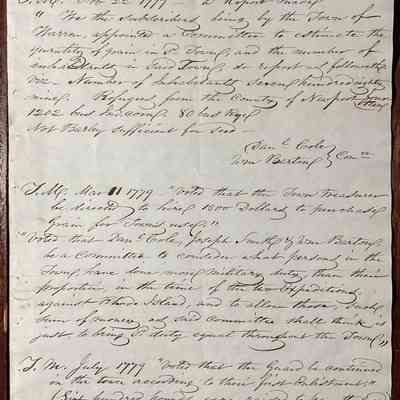 T.M. Feb 22 1779 — A Report made
"We the Subscribers being by the Town of
Warren, appointed a Committee to estimate the
quantity of grain in sd Town, and the number of
inhabitants in said Town, do report as followeth
Viz. Number of Inhabitants Seven hundred eighty
nine. Refugees from the County of Newport
1202 bus Ind. corn, 80 bus Rye
Not Barley sufficient for seed —
Danl Cole
Wm Barton Comtt
T.M. Mar 11 1779 "Voted that the Town treasurer
be directed to hire 1500 Dollars to purchase
Grain for Towns use."
"Voted that Danl Cole, Joseph Smith & Wm Barton,
be a Committee to consider what persons in the
Town, have done more military duty than their
proportion in the time of the two Expeditions
against Rhode Island, and to allow those, such
sum of money as said Committee shall think is
just to bring sd duty equal throughout the Town"
T.M. July 1779 "Voted that the Guard be continued
in the town according to their first Enlistment"
(Six hundred pounds